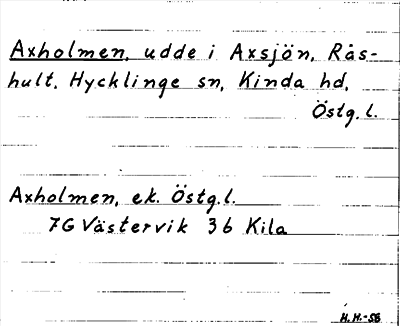 Axholmen, udde i Axsjön, Rås-
hult. Hycklinge sn, Kinda hd,
Östg.l.
Axholmen, ek. Östg.l.
7G Västervik 3b Kila
H.H.-58